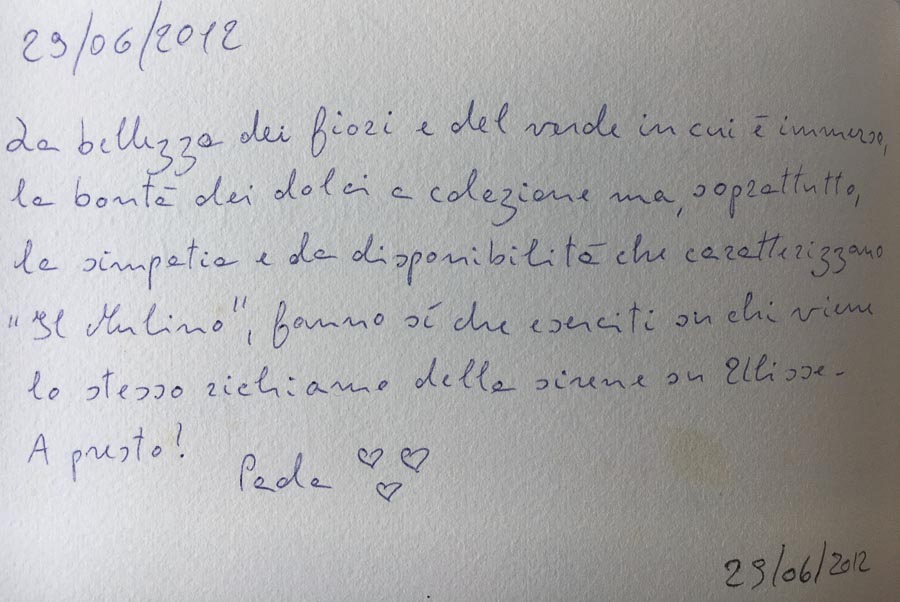 29/06/2012
La bellezza dei fiori e del verde in cui è immerso,
la bontà dei dolci a colazione ma, soprattutto,
la simpatia e la disponibilità che caratterizzano
"Il Mulino", fanno sì che eserciti su chi viene
lo stesso richiamo delle sirene su Ulisse.
A presto!
Paola
29/06/2012